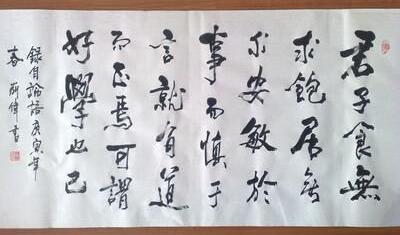 君子食無
求飽居無
求安敏於
事而慎于
言就有道
而正焉可謂
好學也已
錄自論語庚寅年
春 薛偉書